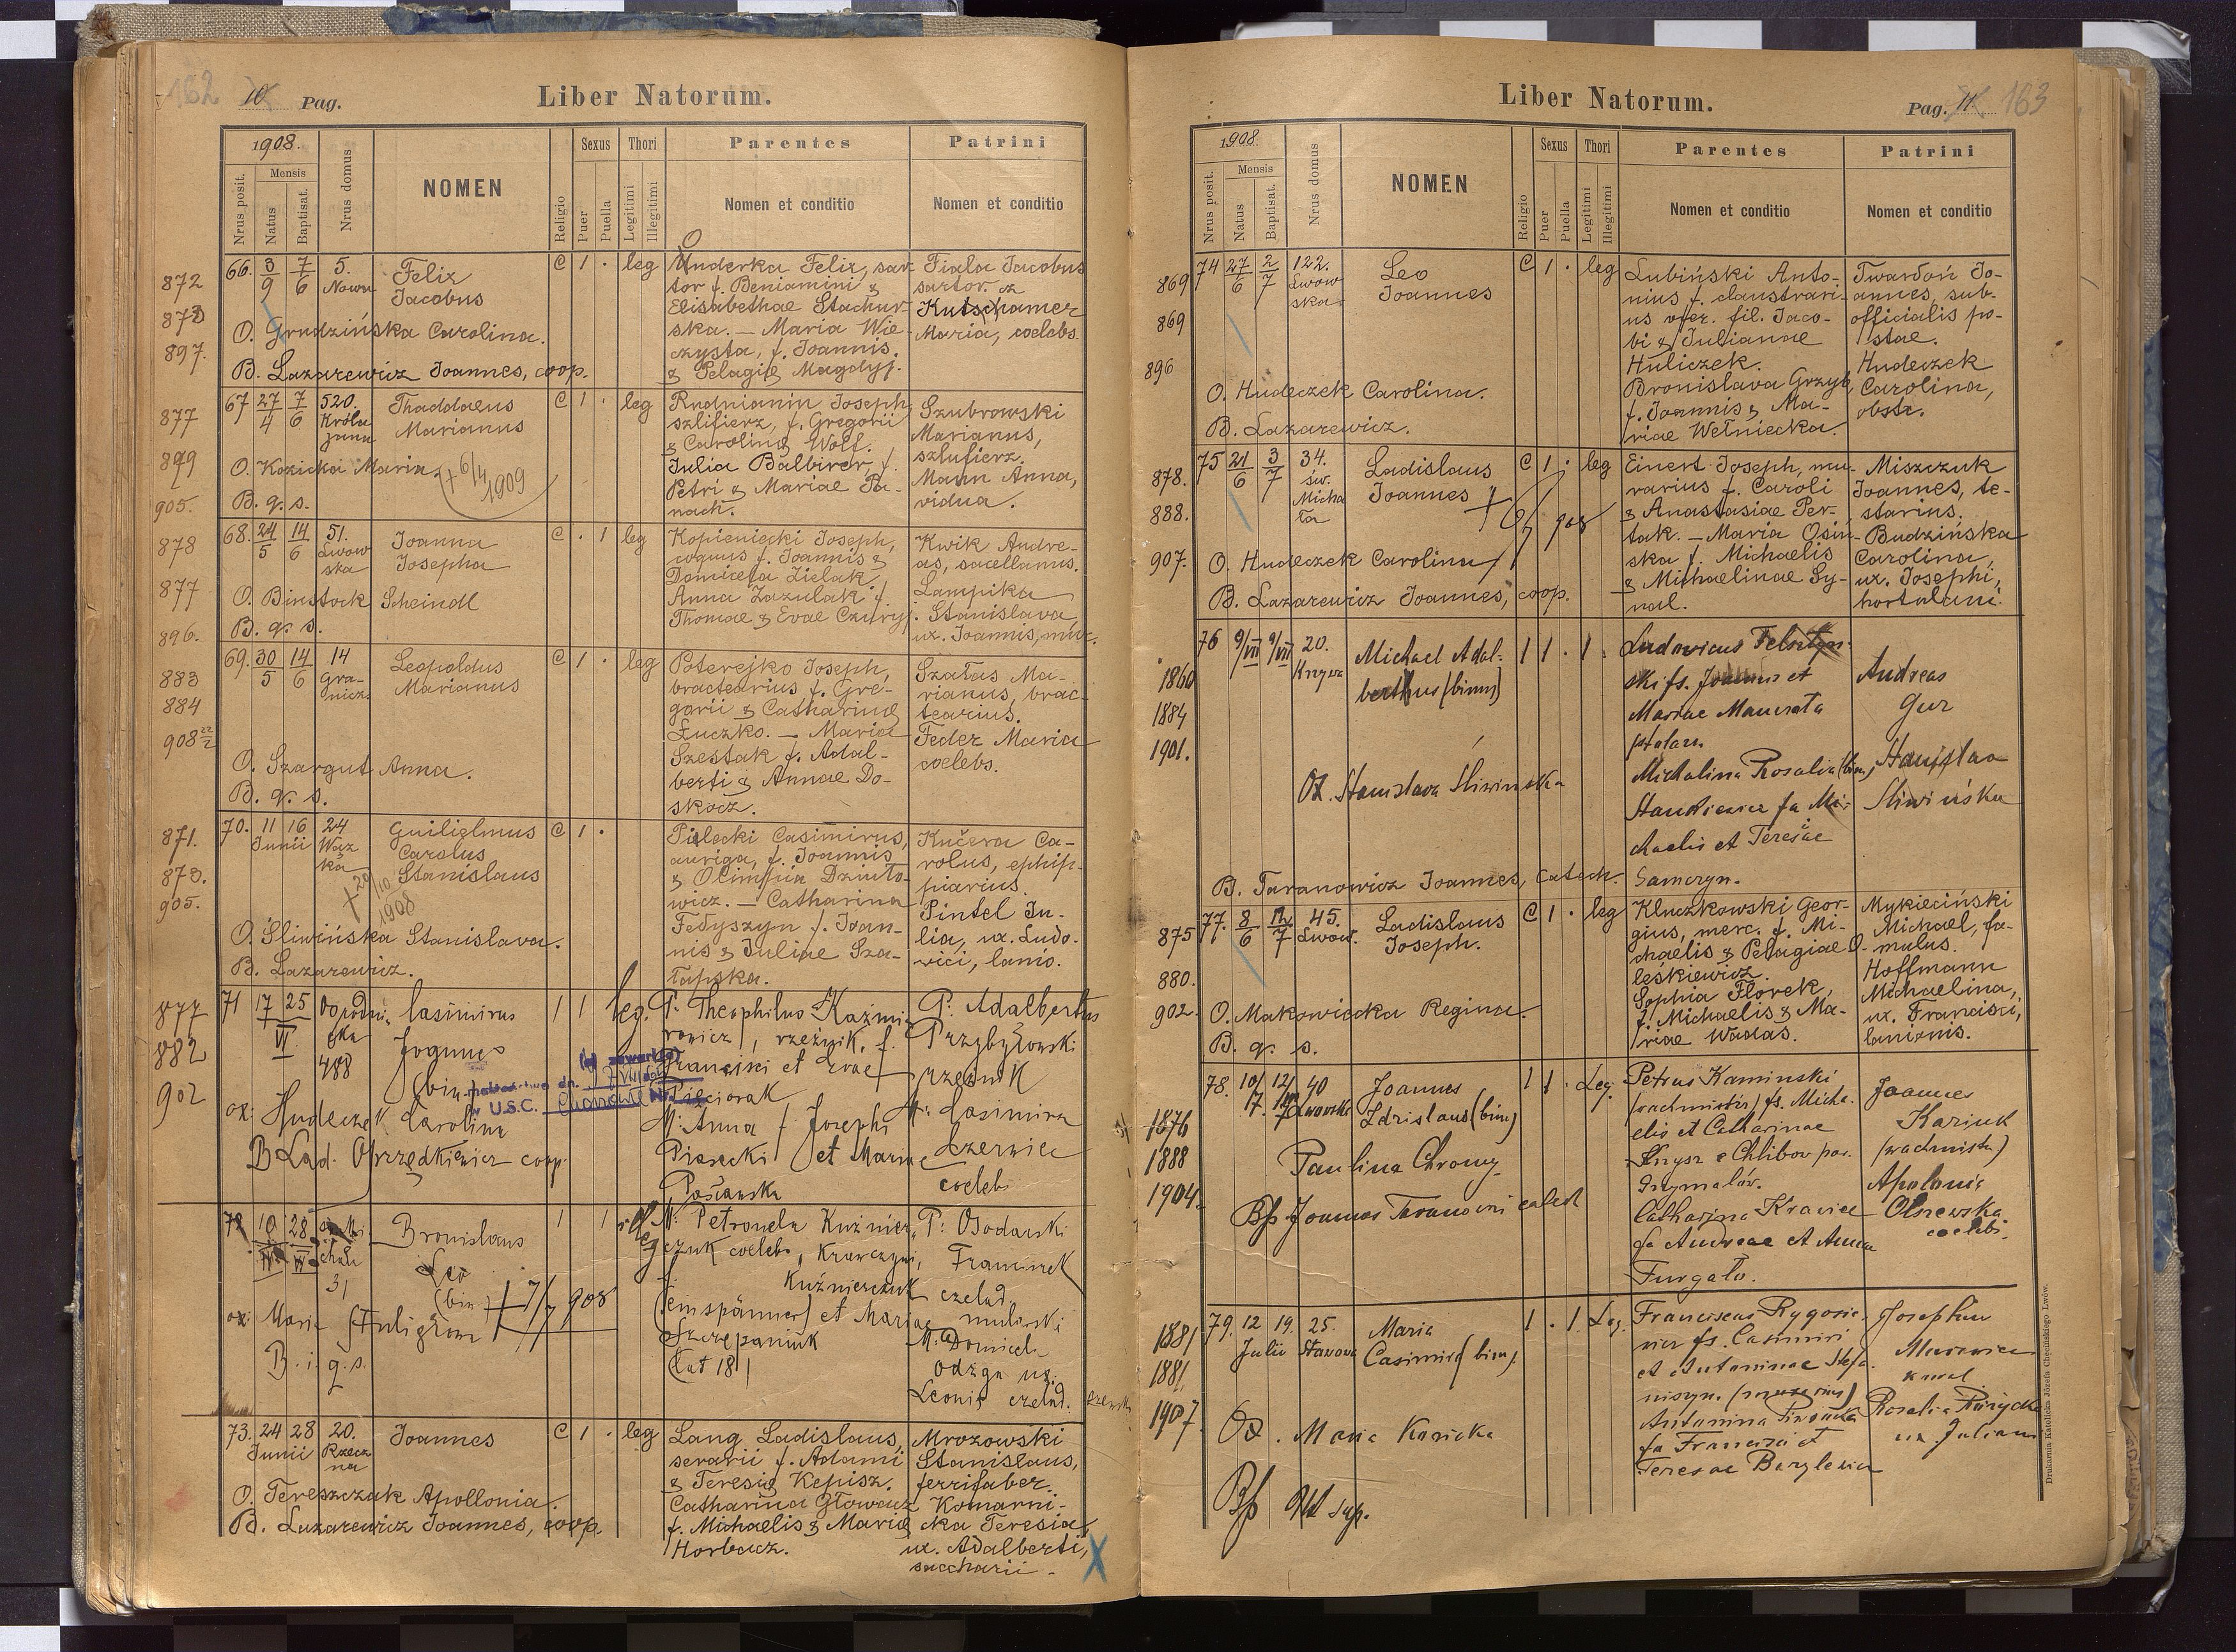 162 10 Pag.
Liber Natorum.
1908.
Nrus posit.
Mensis
Natus
Baptisat.
Nrus domus
NOMEN
Religio
Sexus
Puer
Puella
Thori
Legitimi
Illegitimi
Parentes
Nomen et conditio
Patrini
Nomen et conditio
872
873
897.
66. 3/9 7/6 5. Nowa
Felix
Jacobus
C 1 . leg
Underka Felix, sar-
tor f. Beniamini &
Elisabethae Stachur-
ska. — Maria Wie-
czysta, f. Joannis
& Pelagie Magdyj.
Fiala Jacobus
sartor. &
Kutschamer
Maria, coelebs.
O. Grudzińska Carolina.
B. Lazarewicz Joannes, coop.
877
899
905.
67 27/4 7/6 520.
Thaddaeus
Marianus
C 1 . leg
Rudnianin Joseph
szlifierz, f. Gregorii
& Caroline Wolf.
Julia Balbirer f.
Petri & Mariae Pa-
nach.
Szubrowski
Marianus,
szlufierz.
Maun Anna,
vidua.
O. Kozicka Maria.
+ 6/4 1909
B. q. s.
878
877
896.
68. 24/5 14/6 51. Lwow
ska
Joanna
Josepha
C . 1 leg
Kopieniecki Joseph,
coquus f. Joannis &
Domicela Zielak.
Anna Zazulak f.
Thomae & Evae Czuryj.
Kwik Andre-
as, sacellanus.
Lampika
Stanislava,
ux. Joannis, mur.
O. Binstock Scheindl
B. q. s.
883
884
908 22/2
69. 30/5 14/6 14 Gra-
niczn
Leopoldus
Marianus
C 1 . leg
Poterejko Joseph,
bractearius f. Gre-
gorii & Catharine
Łuczko. — Maria
Szestak f. Adal-
berti & Annae Do-
skocz.
Szałas Ma-
rianus, brac-
tearius.
Feder Maria
coelebs.
O. Szargut Anna.
B. q. s.
871.
873.
905.
70. 11 16 Junii 24
Guilielmus
Carolus
Stanislaus
C 1 .
+ 29/10 1908
Pilecki Casimirus,
auriga, f. Joannis
& Olimpia Dziuto-
wicz. — Catharina
Fedyszyn f. Joan-
nis & Juliae Sza-
łapska.
Kučera Ca-
rolus, ephip-
piarius.
Pintel Ju-
lia, ux. Ludo-
vici, lanio.
O. Śliwińska Stanislava.
B. Lazarewicz.
877
882
902
71 17 25 VI Ogrodni-
cka
488
Casimirus
Joannes
(bin.)
1 1 leg.
P. Theophilus Kazimi-
rowicz, rzeźnik, f.
Francisci et Evae
Pięciorak
M: Anna f. Josephi
Piasecki et Mariae
P: Adalbertus
Przybyłowski
rzeźnik
M: Casimira
Czerwiec
coelebs
w U.S.C.
ox: Hudeczek Carolina
B Lad. Oprzędkiewicz coop.
10 28
31
Bronislaus
Leo
(bin.) + 7/7 908
1 1 illeg
M: Petronela Kuźnier-
czuk coelebs, Krawczyni,
f. Kuźnierczuk
(einspänner) et Mariae
Szczepaniuk
(Lat 18)
P: Osadowski
Franciszek
czelad.
mularski
M: Domicela
Odzga ux.
Leonis czelad.
ox: Maria
B. i q. s.
73. 24 28 Junii 20. Rzecz
na
Joannes
C 1 . leg
Lang Ladislaus,
serarii f. Adami
& Teresie Kepisz.
Catharina Głowacz
f. Michaelis & Marie
Horbacz.
Mrozowski
Stanislaus,
ferrifaber.
Komarni-
cka Teresia
ux. Adalberti,
saccharii.
O. Tereszczak Apollonia.
B. Lazarewicz Joannes, coop.
X
Liber Natorum.
Pag. 11 163
1908.
Nrus posit.
Mensis
Natus
Baptisat.
Nrus domus
NOMEN
Religio
Sexus
Puer
Puella
Thori
Legitimi
Illegitimi
Parentes
Nomen et conditio
Patrini
Nomen et conditio
869
869
896
74 27/6 2/7 122. Lwow
ska
Leo
Joannes
C 1 . leg
Lubiński Anto-
nius f. claustrari-
us vfer. fil. Jaco-
bi & Julianae
Huliczek.
Bronislava Grzyb,
f. Joannis & Ma-
riae Wełniecka.
Twardoń Jo-
annes, sub-
officialis po-
stae.
Hudeczek
Carolina,
obste.
O. Hudeczek Carolina.
B. Lazarewicz.
878.
888.
907.
75 21/6 3/7 34. św.
Micha
ła
Ladislaus
Joannes
+ 6/7 908
C 1 . leg
Einert Joseph, mu-
rarius f. Caroli
& Anastasiae Per-
tak. — Maria Osiń-
ska f. Michaelis
& Michaelinae Sy-
nal.
Miszczuk
Joannes, te-
starius.
Budzińska
Carolina,
ux. Josephi,
hortulani.
O. Hudeczek Carolina
B. Lazarewicz Joannes, coop.
1860
1884
1901.
76 9/VII 9/VII 20.
Michael Adal-
berthus (binus)
1 1 . 1 .
Ludovicus Felsztyn-
ski fs. Joannis et
Mariae
Michalina Rosalia (bin)
Stankiewicz fa Mi-
chaelis et Teresae
Samczyn.
Andreas
Gur
Stanislava
Sliwińska
Ox. Stanislava Sliwinska
B. Taranowicz Joannes, Catech.
875
880.
902.
77. 8/6 12/7 45. Lwow.
Ladislaus
Joseph.
C 1 . leg
Kluczkowski Geor-
gius, merc. f. Mi-
chaelis & Pelagiae O-
leśkiewicz.
Sophia Florek,
f. Michaelis & Ma-
riae Wadas.
Mykieciński
Michael, fa-
mulus.
Hoffmann
Michaelina,
ux. Francisci,
lanionis.
O. Makowiecka Regina.
B. q. s.
1876
1888
1904.
78. 10/7. 12/7 40 Lwowska
Joannes
Zdzislaus (bin)
1 1 . Leg.
Petrus Kaminski
(wachmistrz) fs. Micha-
elis et Catharinae
Knysz e Chlibow pow.
Grzymałów.
Catharina Krawiec
fa Andreae et Annae
Furgało.
Joannes
Karjuk
(wachmistrz)
Apolonia
Olszewska
coelebs.
Paulina Chromy
Bp. Joannes catech
1881
1881.
1907.
79. 12 19. Julii 25. Stawowa
Maria
Casimira (bin).
1 . 1 Leg.
Franciscus Rygorie-
wicz fs. Casimiri
et Antoninae Stefa-
niszyn.
Antonina
fa Francisci et
Teresae
Josephus
Rosalia
ux Juliani
Ox. Maria Kozicka
Bp Ut sup.
Drukarnia Katolicka Józefa Chęcińskiego Lwów.